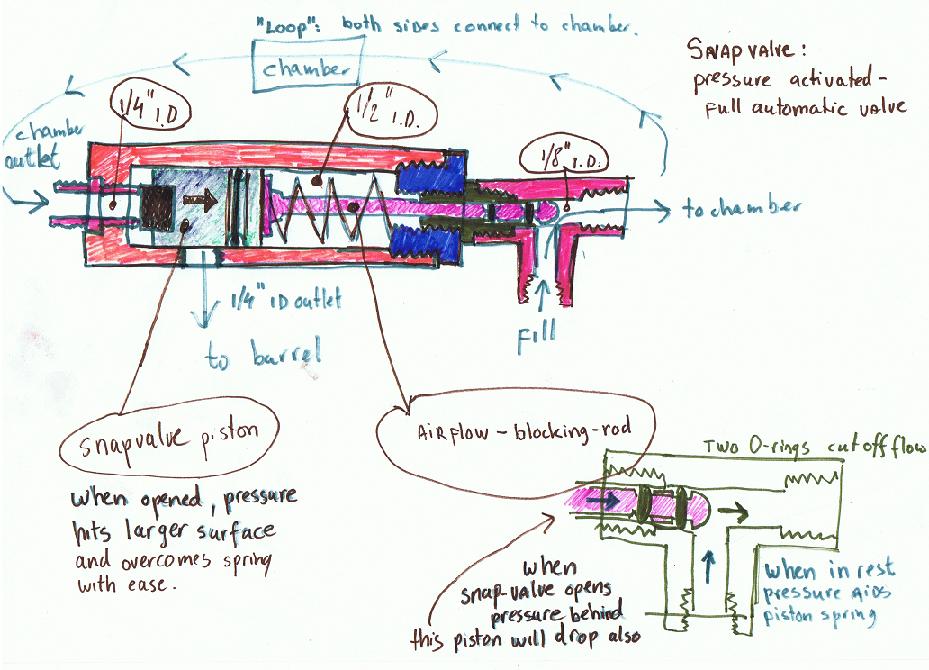 "Loop": both sides connect to chamber.
chamber
SNAPVALVE:
pressure activated-
Full automatic valve
1/4" I.D
1/2" I.D.
1/8" I.D.
chamber
outlet
to chamber
1/4" ID outlet
to barrel
Fill
snapvalve piston
AiRflow-blocking-rod
when opened, pressure
hits larger surface
and overcomes spring
with ease.
Two O-rings cut off flow
when
snap-valve opens
pressure behind
this piston will drop also
when in rest
pressure AIDS
piston spring